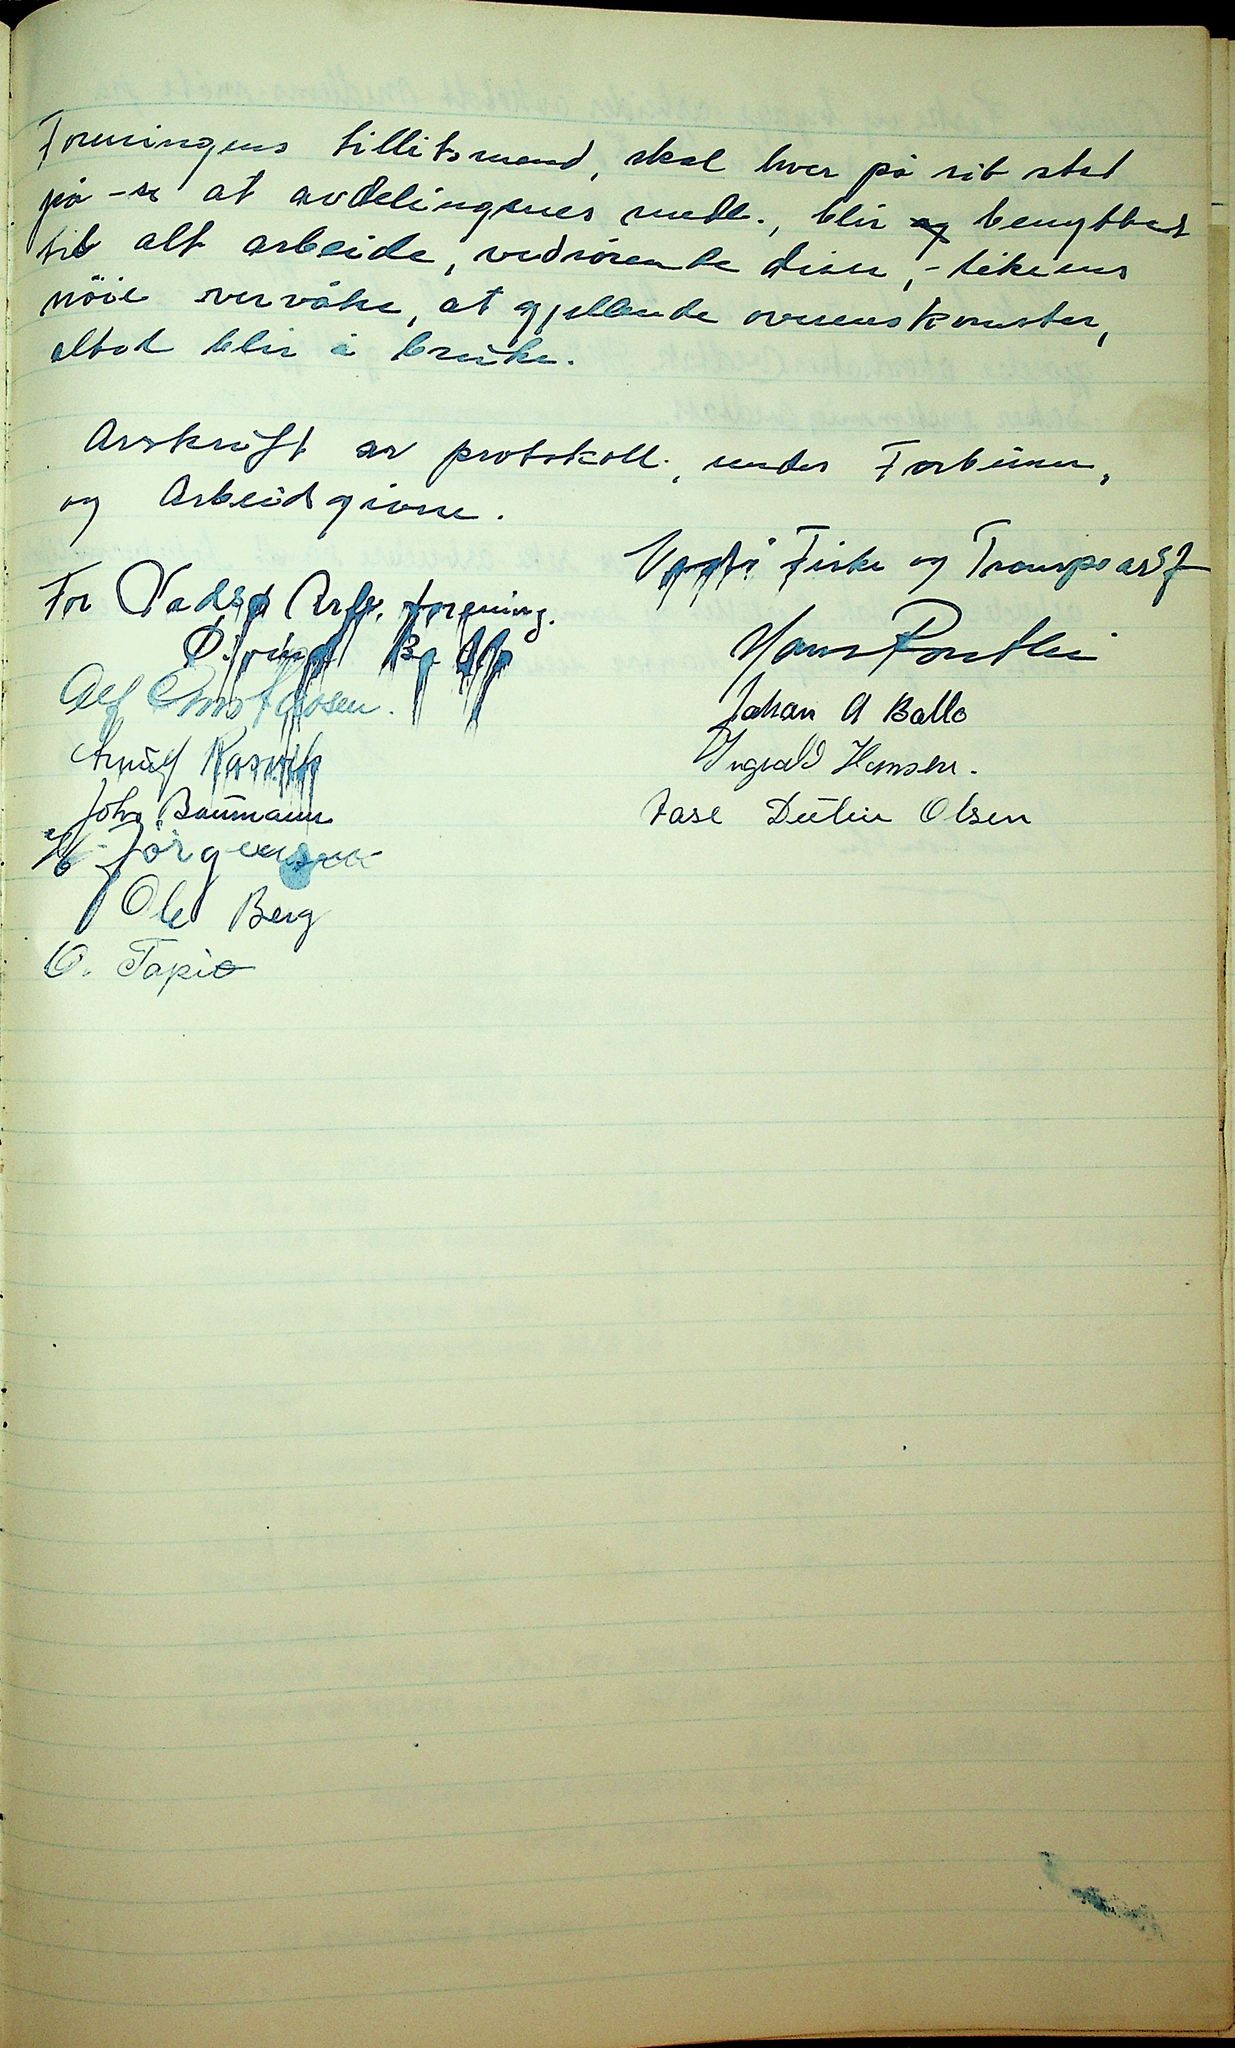 Foreningens tillitsmend, skal hver på sit sted
på-se at avdelingenes medl., blir benyttet
til alt arbeide, vedrørende disse, - likeens
nöie overvåke, at gjellende overenskomster,
altid blir i bruke.
Avskrift av protokoll., sendes Forbunn,
og Arbeidsgivne.
For Vadsø Arb. forening.
Vadsø Fiske og Transpoarbf
Alf Christiansen.
Hans
Johan A Ballo
Arnulf Rasvik
Ingvald Hansen.
John Baumann
Aase Olsen
H. Jörgensen
Ole Berg
O. Tapio